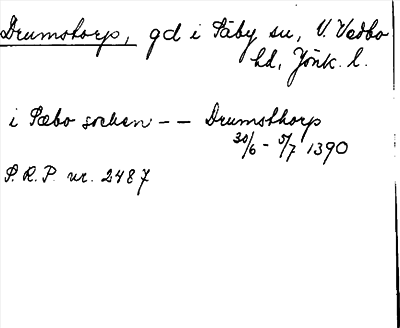 Drumstorp, gd i Säby sn, V. Vedbo
hd, Jönk. l.
i Sæbo socken -- Drumsthorp
30/6 - 5/7 1390
S.R.P. nr. 2487